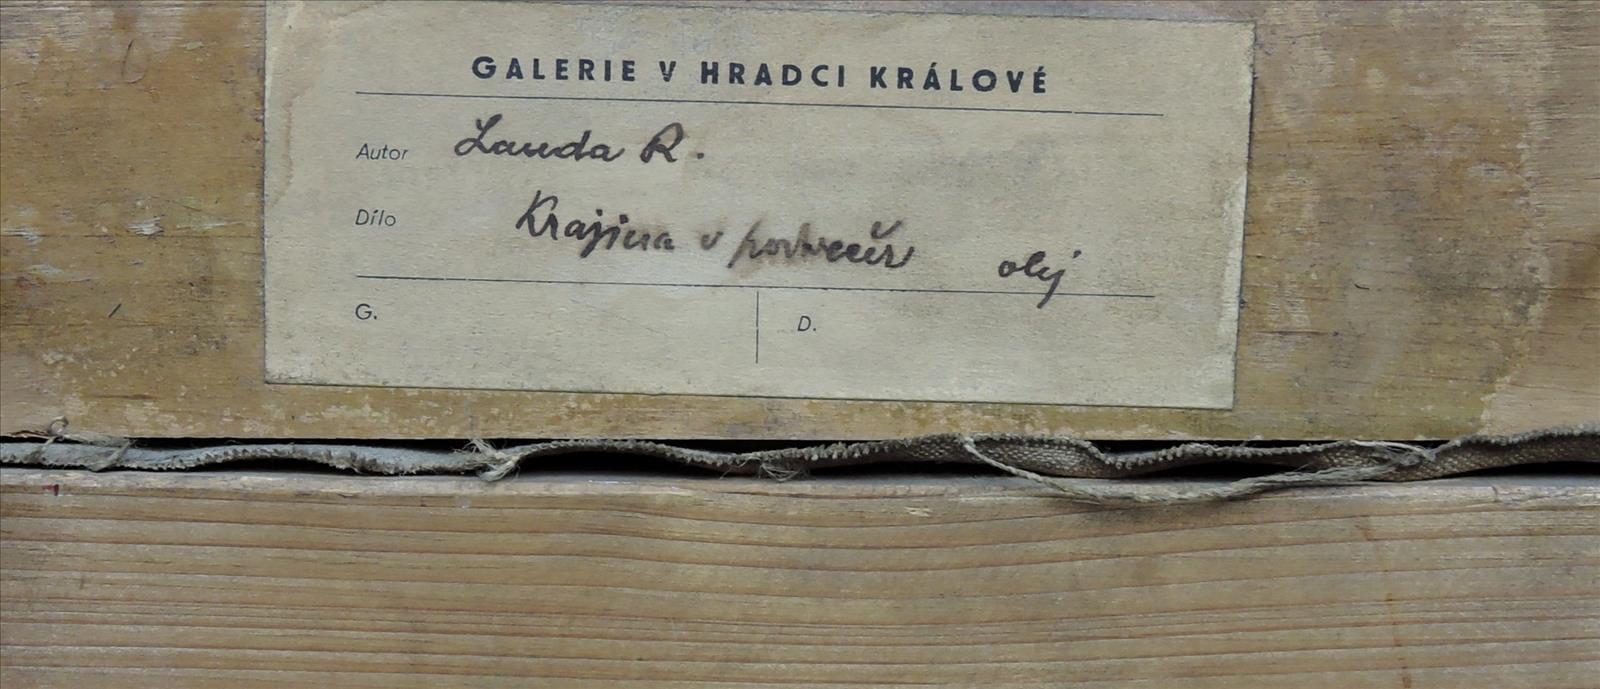 GALERIE V HRADCI KRÁLOVÉ
Autor Lauda R.
Dílo Krajina v podvečer olej
G. D.